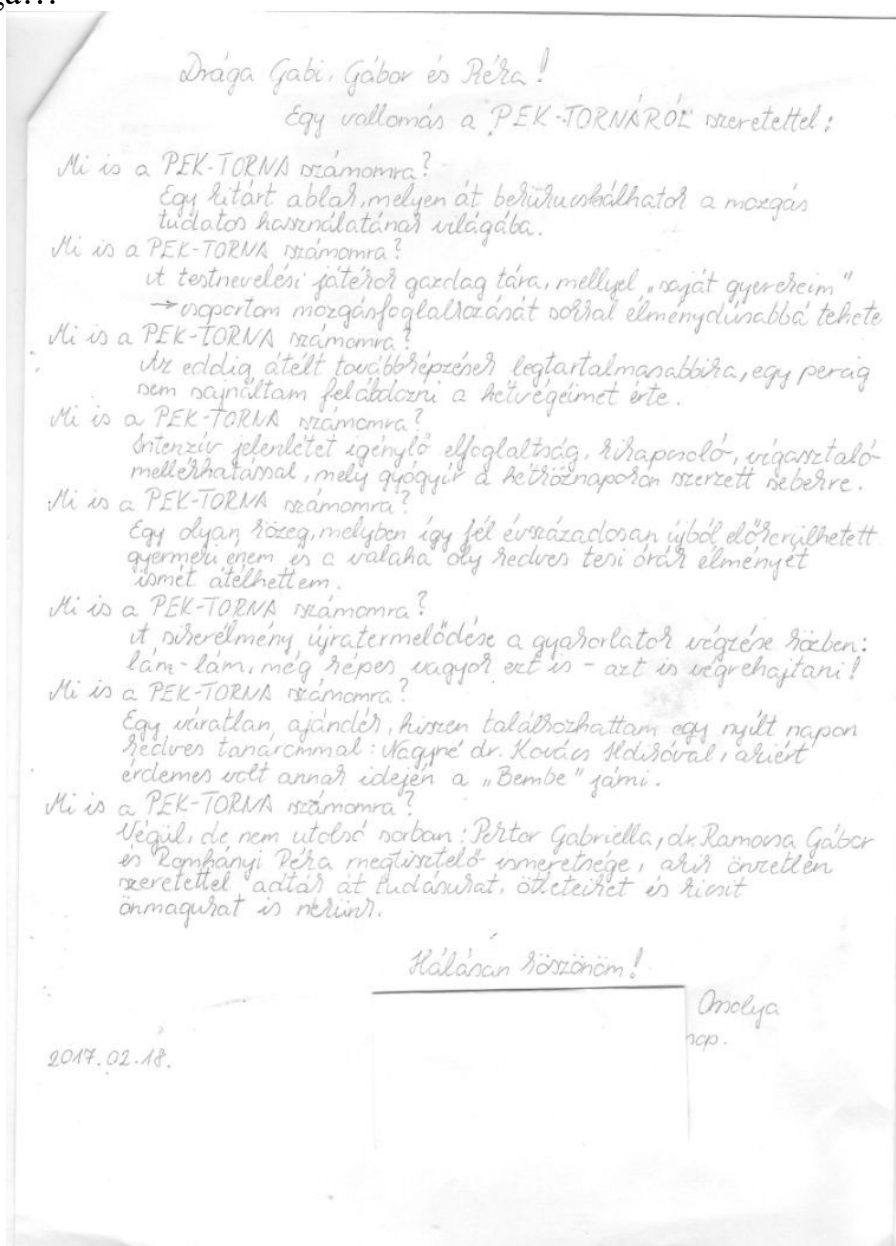 Drága Gabi, Gábor és Réka!
Egy vallomás a PEK-TORNÁRÓL szeretettel:
Mi is a PEK-TORNA számomra?
Egy kitárt ablak, melyen át bekukucskálhatok a mozgás
tudatos használatának világába.
Mi is a PEK-TORNA számomra?
A testnevelési játékok gazdag tára, mellyel „saját gyerekeim”
→ csoportom mozgásfoglalkozását sokkal élménydúsabbá tehete
Mi is a PEK-TORNA számomra?
Az eddig átélt továbbképzések legtartalmasabbika, egy percig
sem sajnáltam feláldozni a hétvégéimet érte.
Mi is a PEK-TORNA számomra?
Intenzív jelenlétet igénylő elfoglaltság, kikapcsoló-, vigasztaló-
mellékhatással, mely gyógyír a hétköznapokon szerzett sebekre.
Mi is a PEK-TORNA számomra?
Egy olyan közeg, melyben így fél évszázadosan újból előkerülhetett
gyermeki énem és a valaha oly kedves tesi órák élményét
ismét átélhettem.
Mi is a PEK-TORNA számomra?
A sikerélmény újratermelődése a gyakorlatok végzése közben:
lám-lám, még képes vagyok ezt is – azt is végrehajtani!
Mi is a PEK-TORNA számomra?
Egy váratlan ajándék, hiszen találkozhattam egy nyílt napon
kedves tanárommal: Nagyné dr. Kovács Ildikóval, akiért
érdemes volt annak idején a „Bembe” járni.
Mi is a PEK-TORNA számomra?
Végül, de nem utolsó sorban: Gabriella, dr. Gábor
és Romhányi Réka megtisztelő ismeretsége, akik önzetlen
szeretettel adták át tudásukat, ötleteiket és kicsit
önmagukat is nekünk.
Hálásan köszönöm!
Orsolya
2017.02.18.